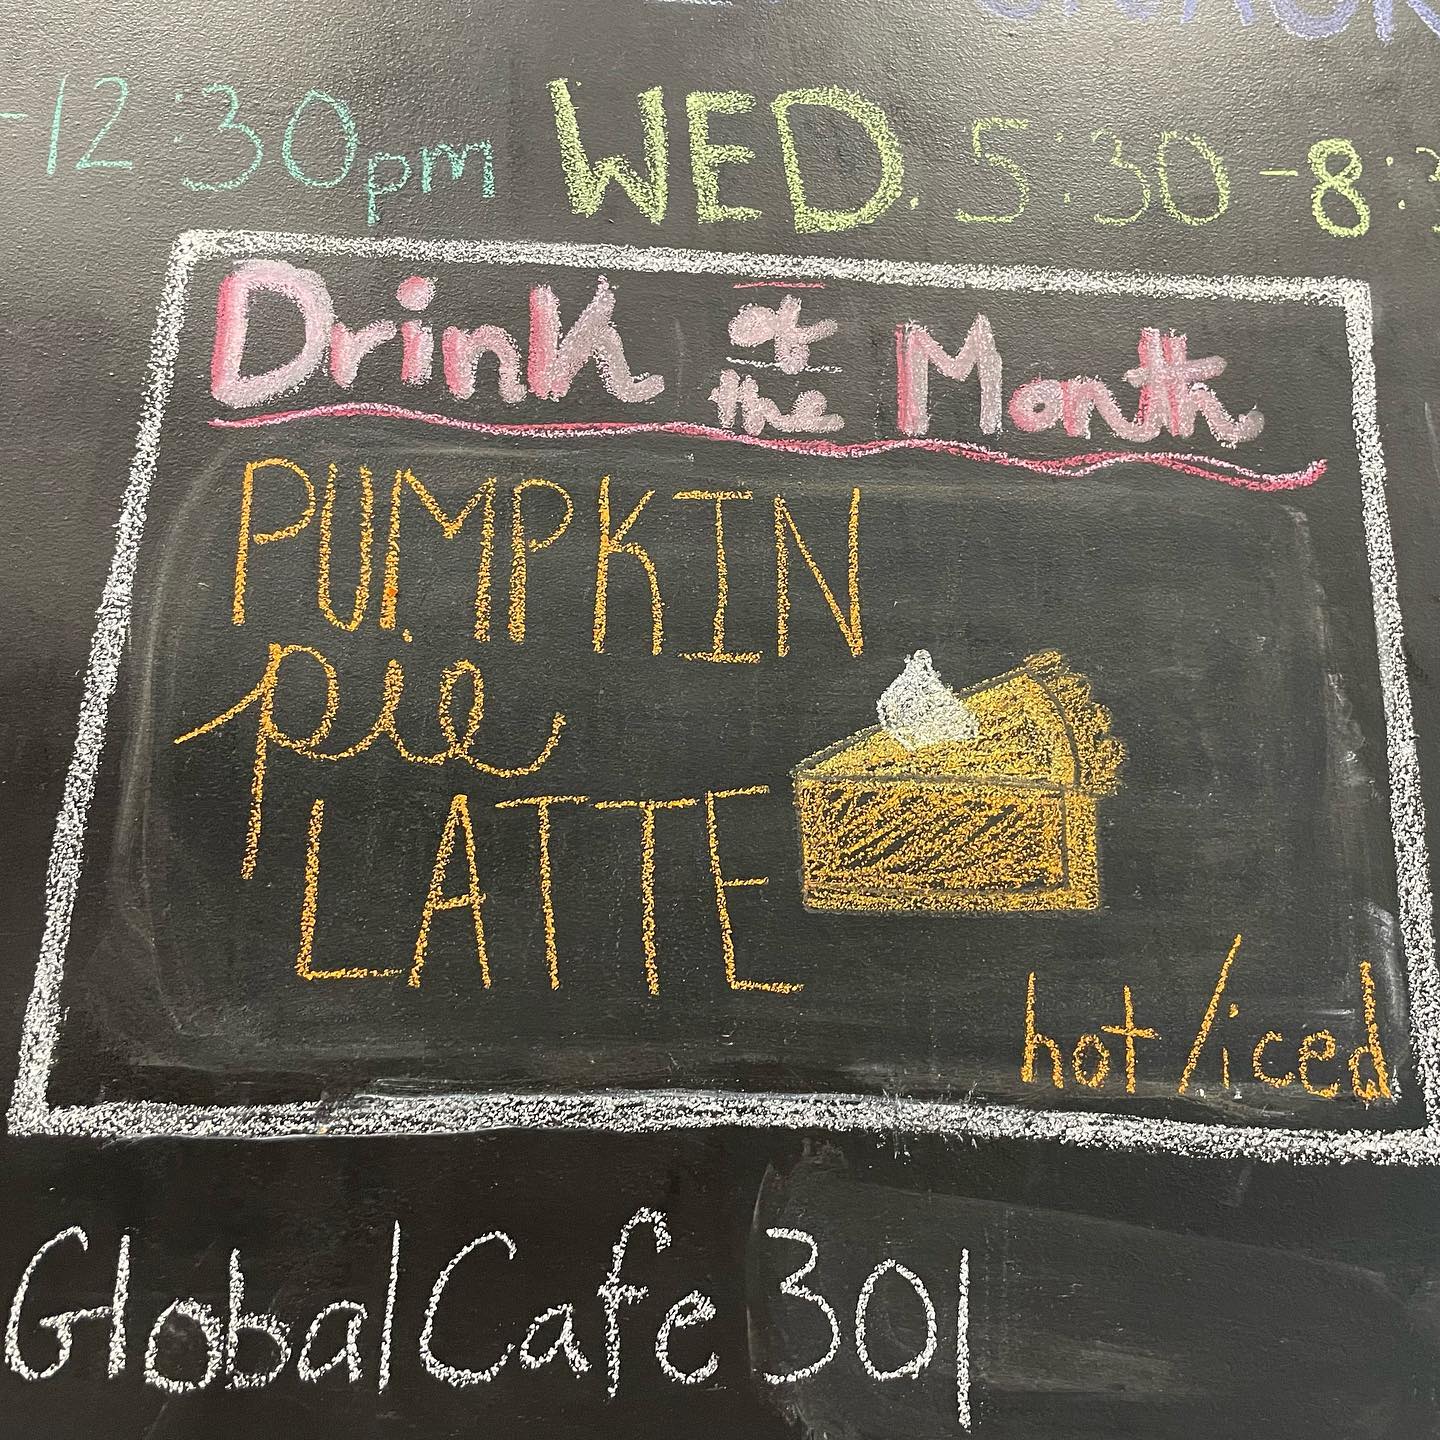 -12:30pm WED. 5:30-8:3
Drink of the Month
PUMPKIN
pie
LATTE
hot/iced
GlobalCafe301